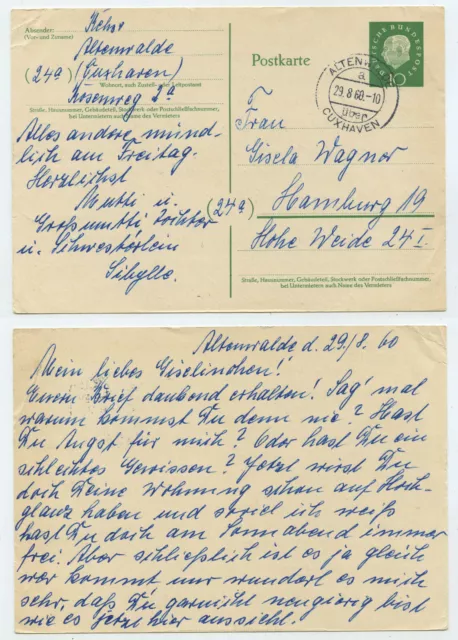 Absender:
(Vor- und Zuname)
Altenwalde
(24a) (Cuxhaven)
Wohnort, auch Zustell- oder Leitpostamt
Rosenweg 8a
Straße, Hausnummer, Gebäudeteil, Stockwerk oder Postschließfachnummer,
bei Untermietern auch Name des Vermieters
Alles andere münd-
lich am Freitag.
Herzlichst
Mutti u.
Großmutti Tochter
u. Schwesterlein
Sibylle.
Postkarte
DEUTSCHE BUNDESPOST
10
ALTENWALDE
a
29.8.60.-10
über
CUXHAVEN
Frau
Gisela Wagner
(24a) Hamburg 19
Hohe Weide 24 I.
Straße, Hausnummer, Gebäudeteil, Stockwerk oder Postschließfachnummer,
bei Untermietern auch Name des Vermieters
Altenwalde d. 29./8. 60
Mein liebes Giselinchen!
Euren Brief dankend erhalten! Sag' mal
warum kommst Du denn nie? Hast
Du Angst für mich? Oder hast Du ein
schlechtes Gewissen? Jetzt wirst Du
doch Deine Wohnung schon auf Hoch-
glanz haben und soviel ich weiß
hast Du doch am Sonnabend immer
frei. Aber schließlich ist es ja gleich
wer kommt nur wundert es mich
sehr, daß Du garnicht neugierig bist
wie es jetzt hier aussieht.